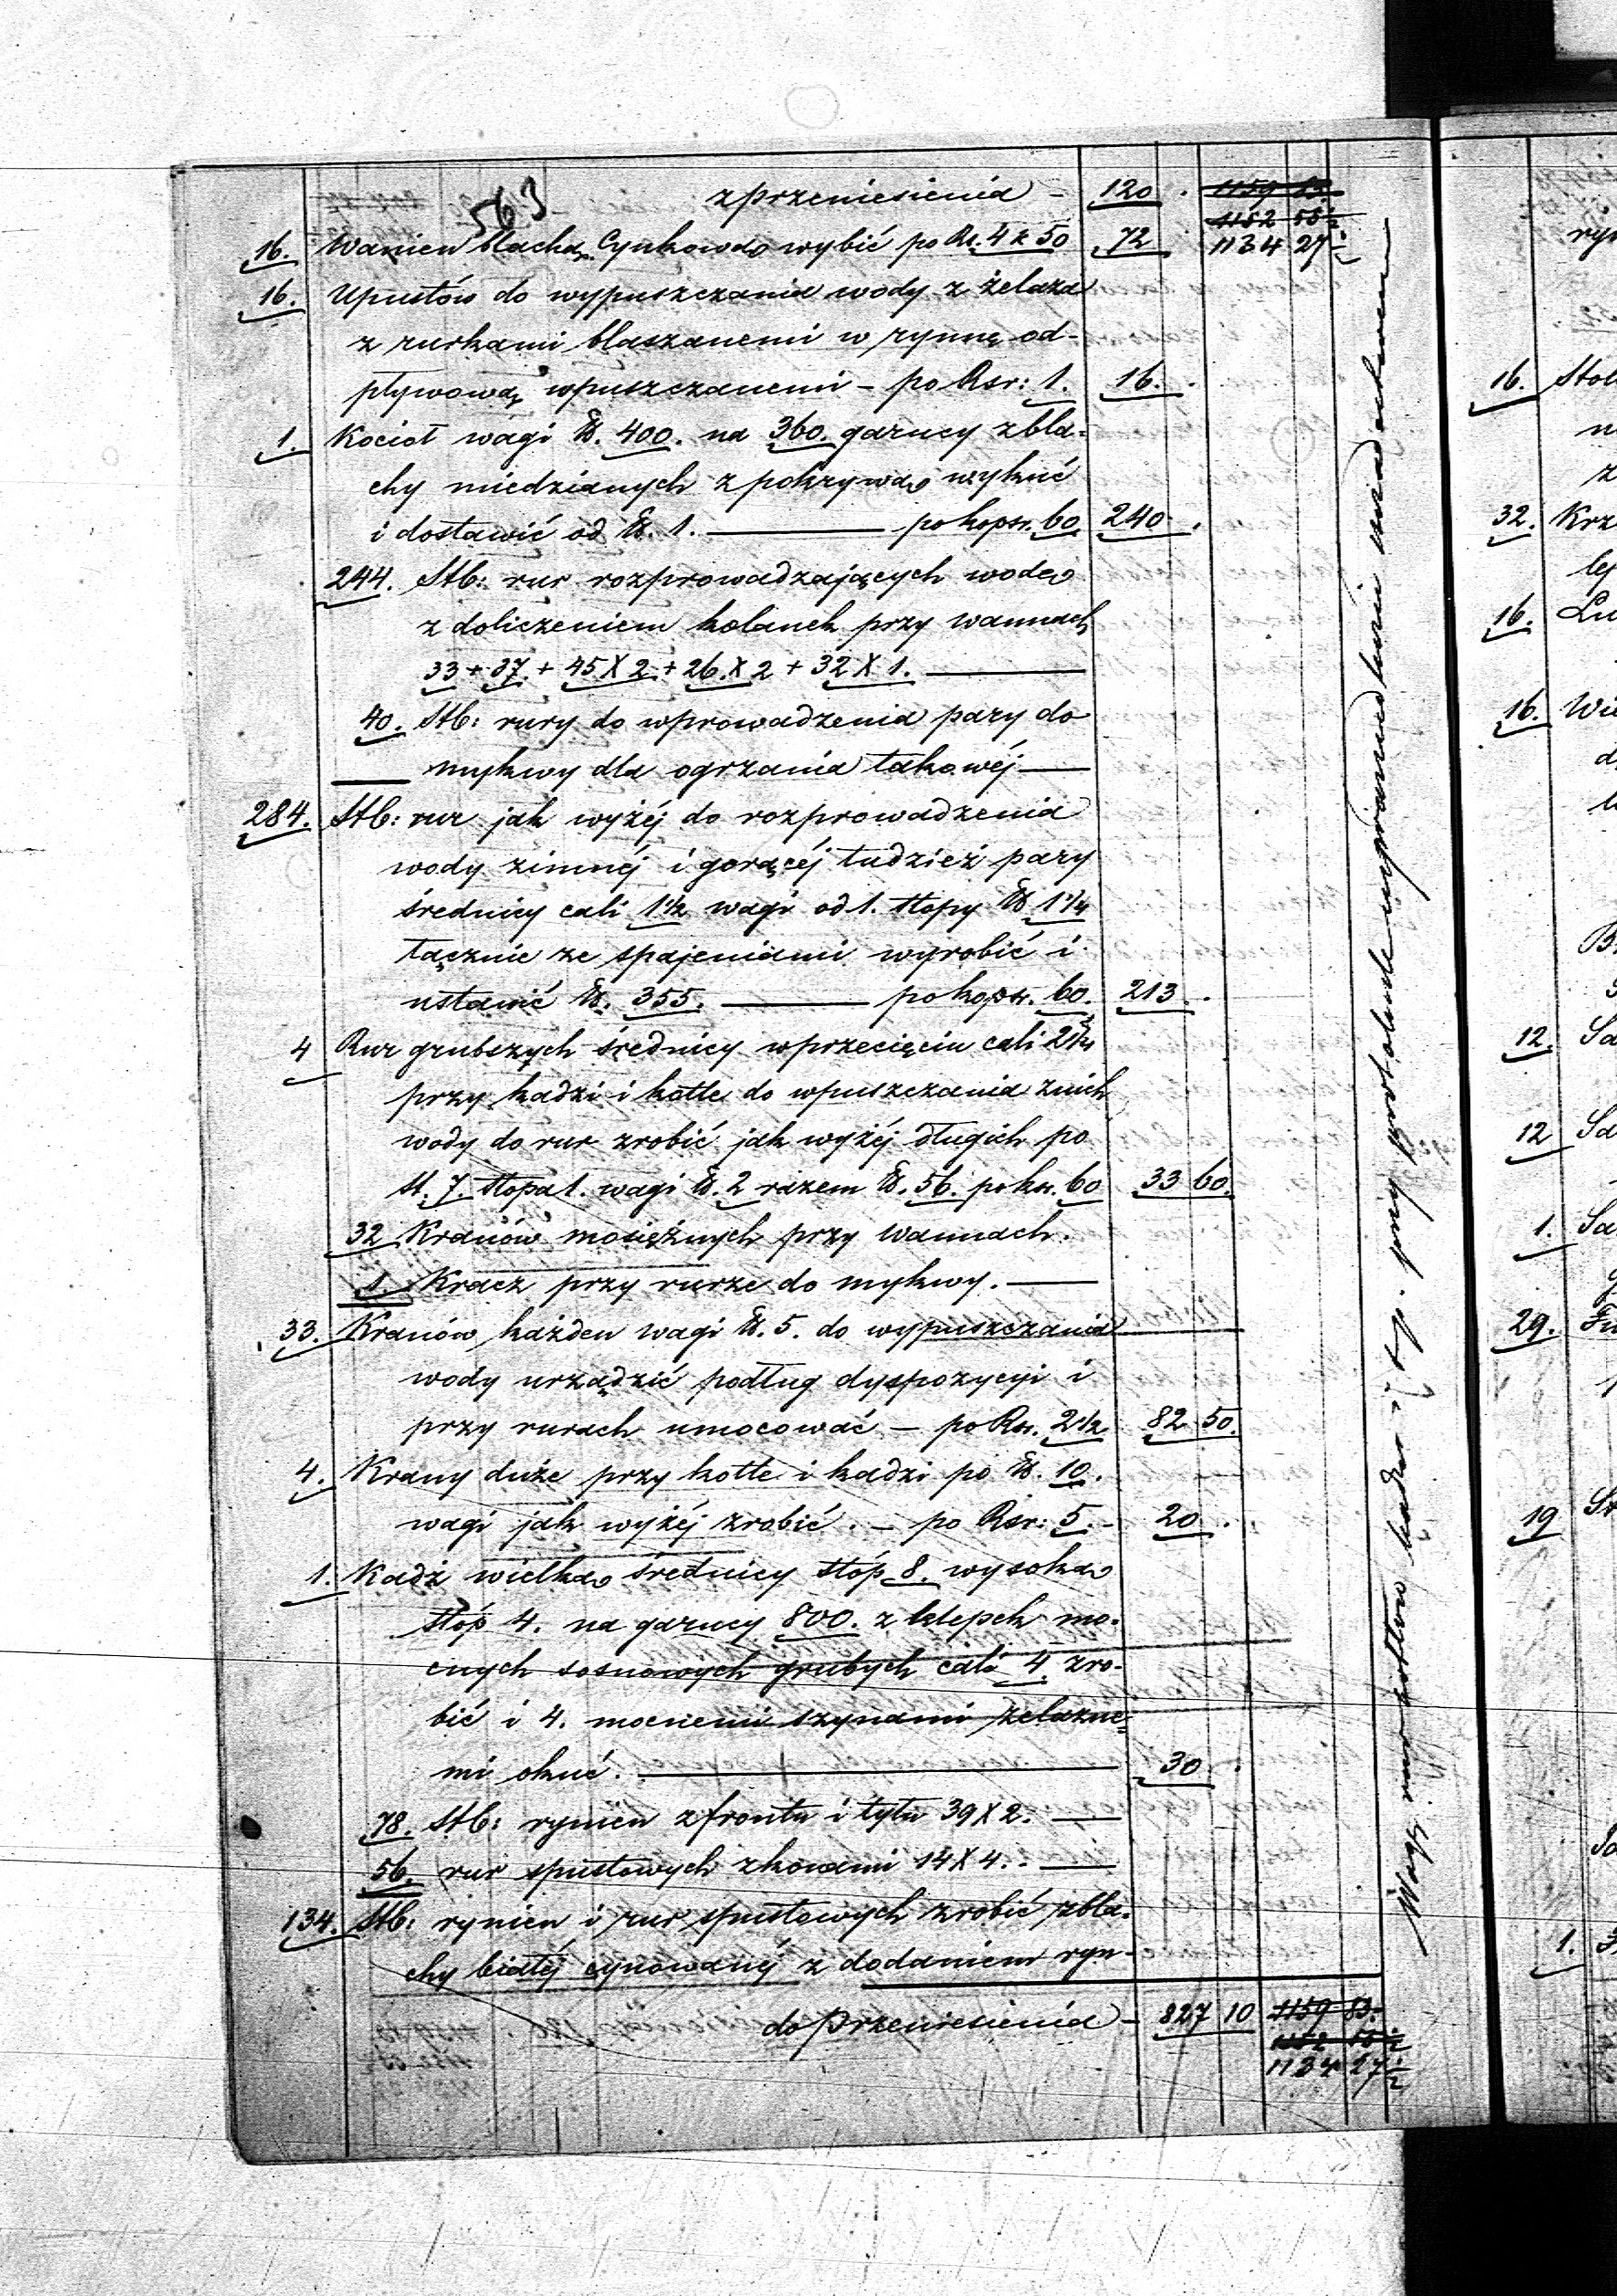 563
z przeniesienia – 120 . 1159 83.
1152 55½
16. Wanien blachą Cynkową wybić po Rs. 4 k 50 72 1134 27½
16. Upustów do wypuszczania wody z żelaza
z rurkami blaszanemi w rynnę od-
pływową wpuszczanemi – po Rsr: 1. 16. .
1. Kocioł wagi ℔. 400. na 360. garncy z bla-
chy miedzianych z pokrywą wykuć
i dostawić od ℔. 1. — po kopsr. 60 240 .
244. Stb: rur rozprowadzających wodę
z doliczeniem kolanek przy wannach
33 + 37. + 45 X 2. + 26. X 2 + 32 X 1. —
40. Stb: rury do wprowadzenia pary do
mykwy dla ogrzania takowéj —
284. Stb: rur jak wyżéj do rozprowadzenia
wody zimnéj i gorącéj tudzież pary
średnicy cali 1½ wagi od 1. stopy ℔ 1¼
łącznie ze spajeniami wyrobić i
ustawić ℔. 355. — po kopsr. 60. 213 .
4 Rur grubszych średnicy w przecięciu cali 2¾
przy kadzi i kotle do wpuszczania z nich
wody do rur zrobić jak wyżéj długich po
st. 7. stopa 1. wagi ℔. 2 razem ℔. 56. po ksr. 60 33 60.
32 Kranów mosiężnych przy wannach.
1. Kracz przy rurze do mykwy. —
33. Kranów każden wagi ℔. 5. do wypuszczania
wody urządzić podług dyspozycyi i
przy rurach umocować – po Rsr. 2½ 82 50.
4. Krany duże przy kotle i kadzi po ℔. 10.
wagi jak wyżéj zrobić. – po Rsr: 5. – 20 .
1. Kadź wielką średnicy stóp 8. wysoką
stóp 4. na garncy 800. z klepek mo-
cnych sosnowych grubych cali 4. zro-
bić i 4. mocnemi szynami żelazne-
mi okuć. — 30 .
78. Stb: rynien z frontu i tyłu 39 X 2. —
56. rur spustowych z kowami 14 X 4. –
134. Stb: rynien i rur spustowych zrobić z bla-
chy białéj cynowanéj z dodaniem ryn-
do przeniesienia – 827 10 1159 83.
1152 55½
1134 27½
Wagę rur kotłów kadzi i t. p. przy protokule
ryn
16. Stol
32. Krz
16. Lu
16. Wi
12. Sa
12 Sa
1. Sa
29. Fu
19 St
1.